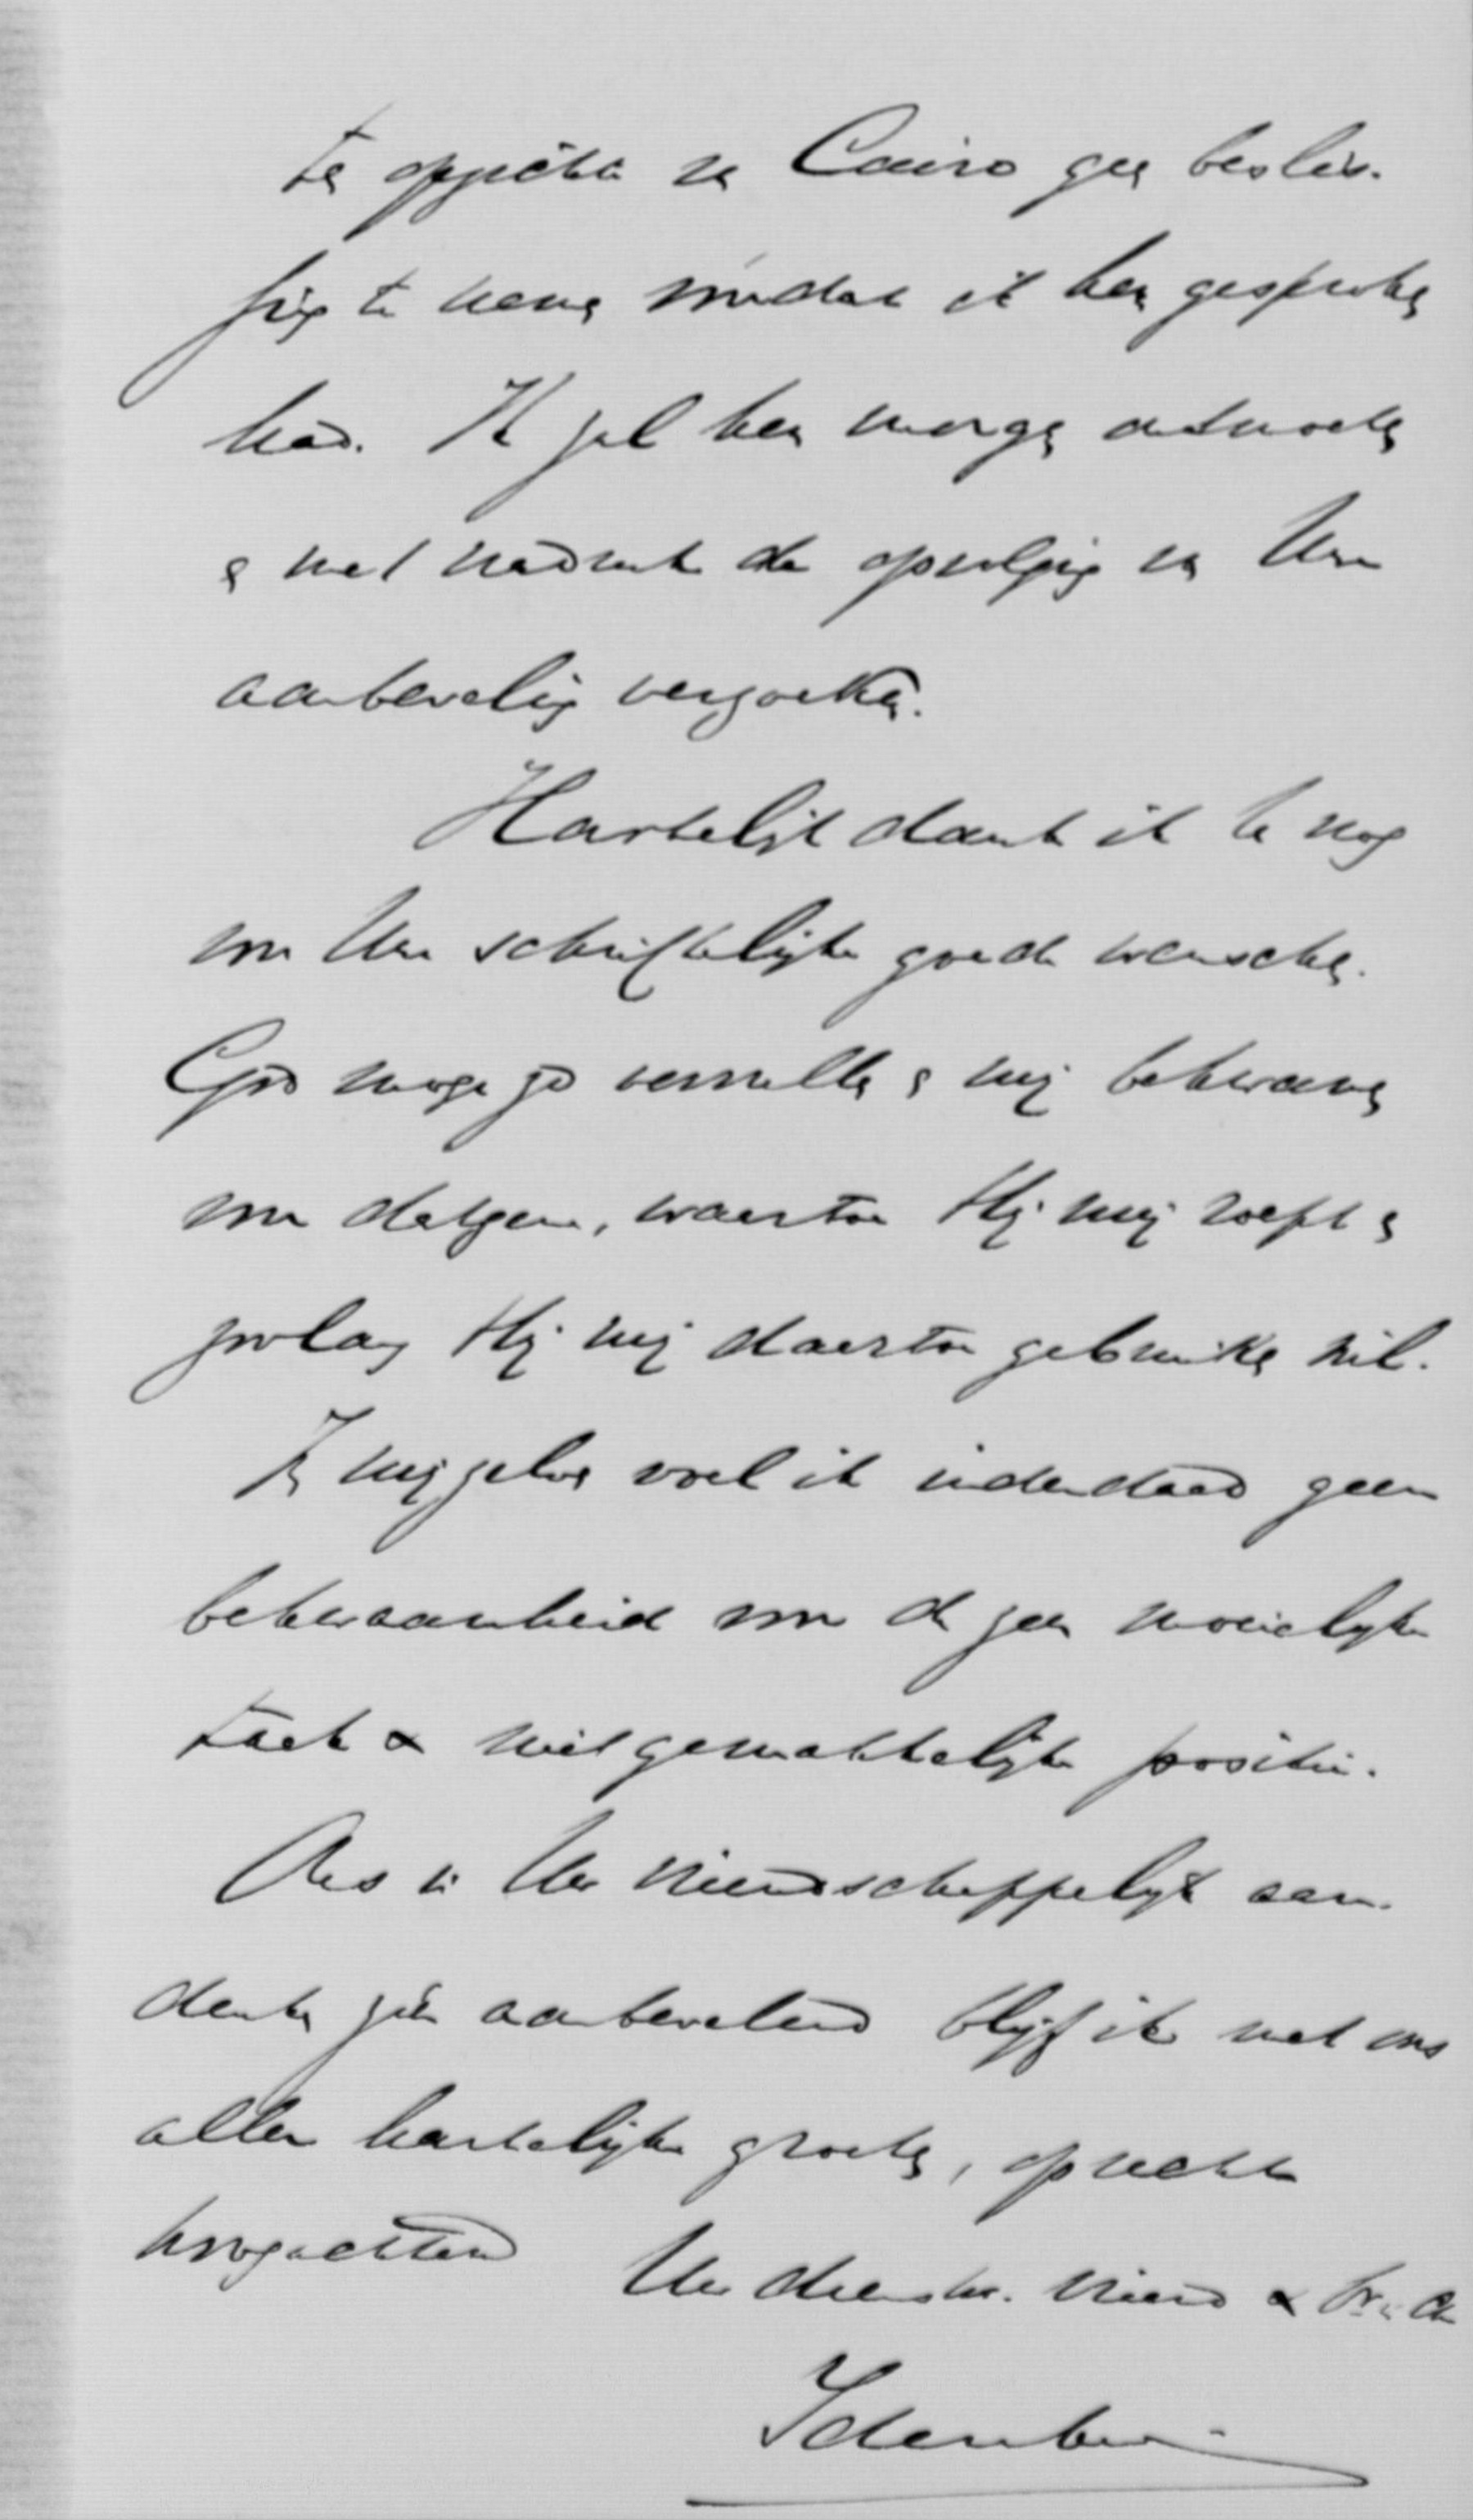 ten opzichte van Cairo geen beslis-
sing te nemen voordat ik hem gesproken
had. Ik zal hem morgen ontmoeten
en met nadruk de opvolging van Uwe
aanbeveling verzoeken.
Hartelijk dank ik U nog
voor Uwe schriftelijke goede wenschen.
God moge ze vervullen en mij bekwamen
voor datgene, waartoe Hij mij roept en
zoolang Hij mij daartoe gebruiken wil.
In mijzelven voel ik inderdaad geen
bekwaamheid voor de zeer moeielijke
taak & niet gemakkelijke positie.
Ons in Uw vriendschappelijk aan-
denken zéér aanbevelend blijf ik met ons
aller hartelijke groeten, oprecht
hoogachtend
Uw dienstw. vriend & br.
Idenburg